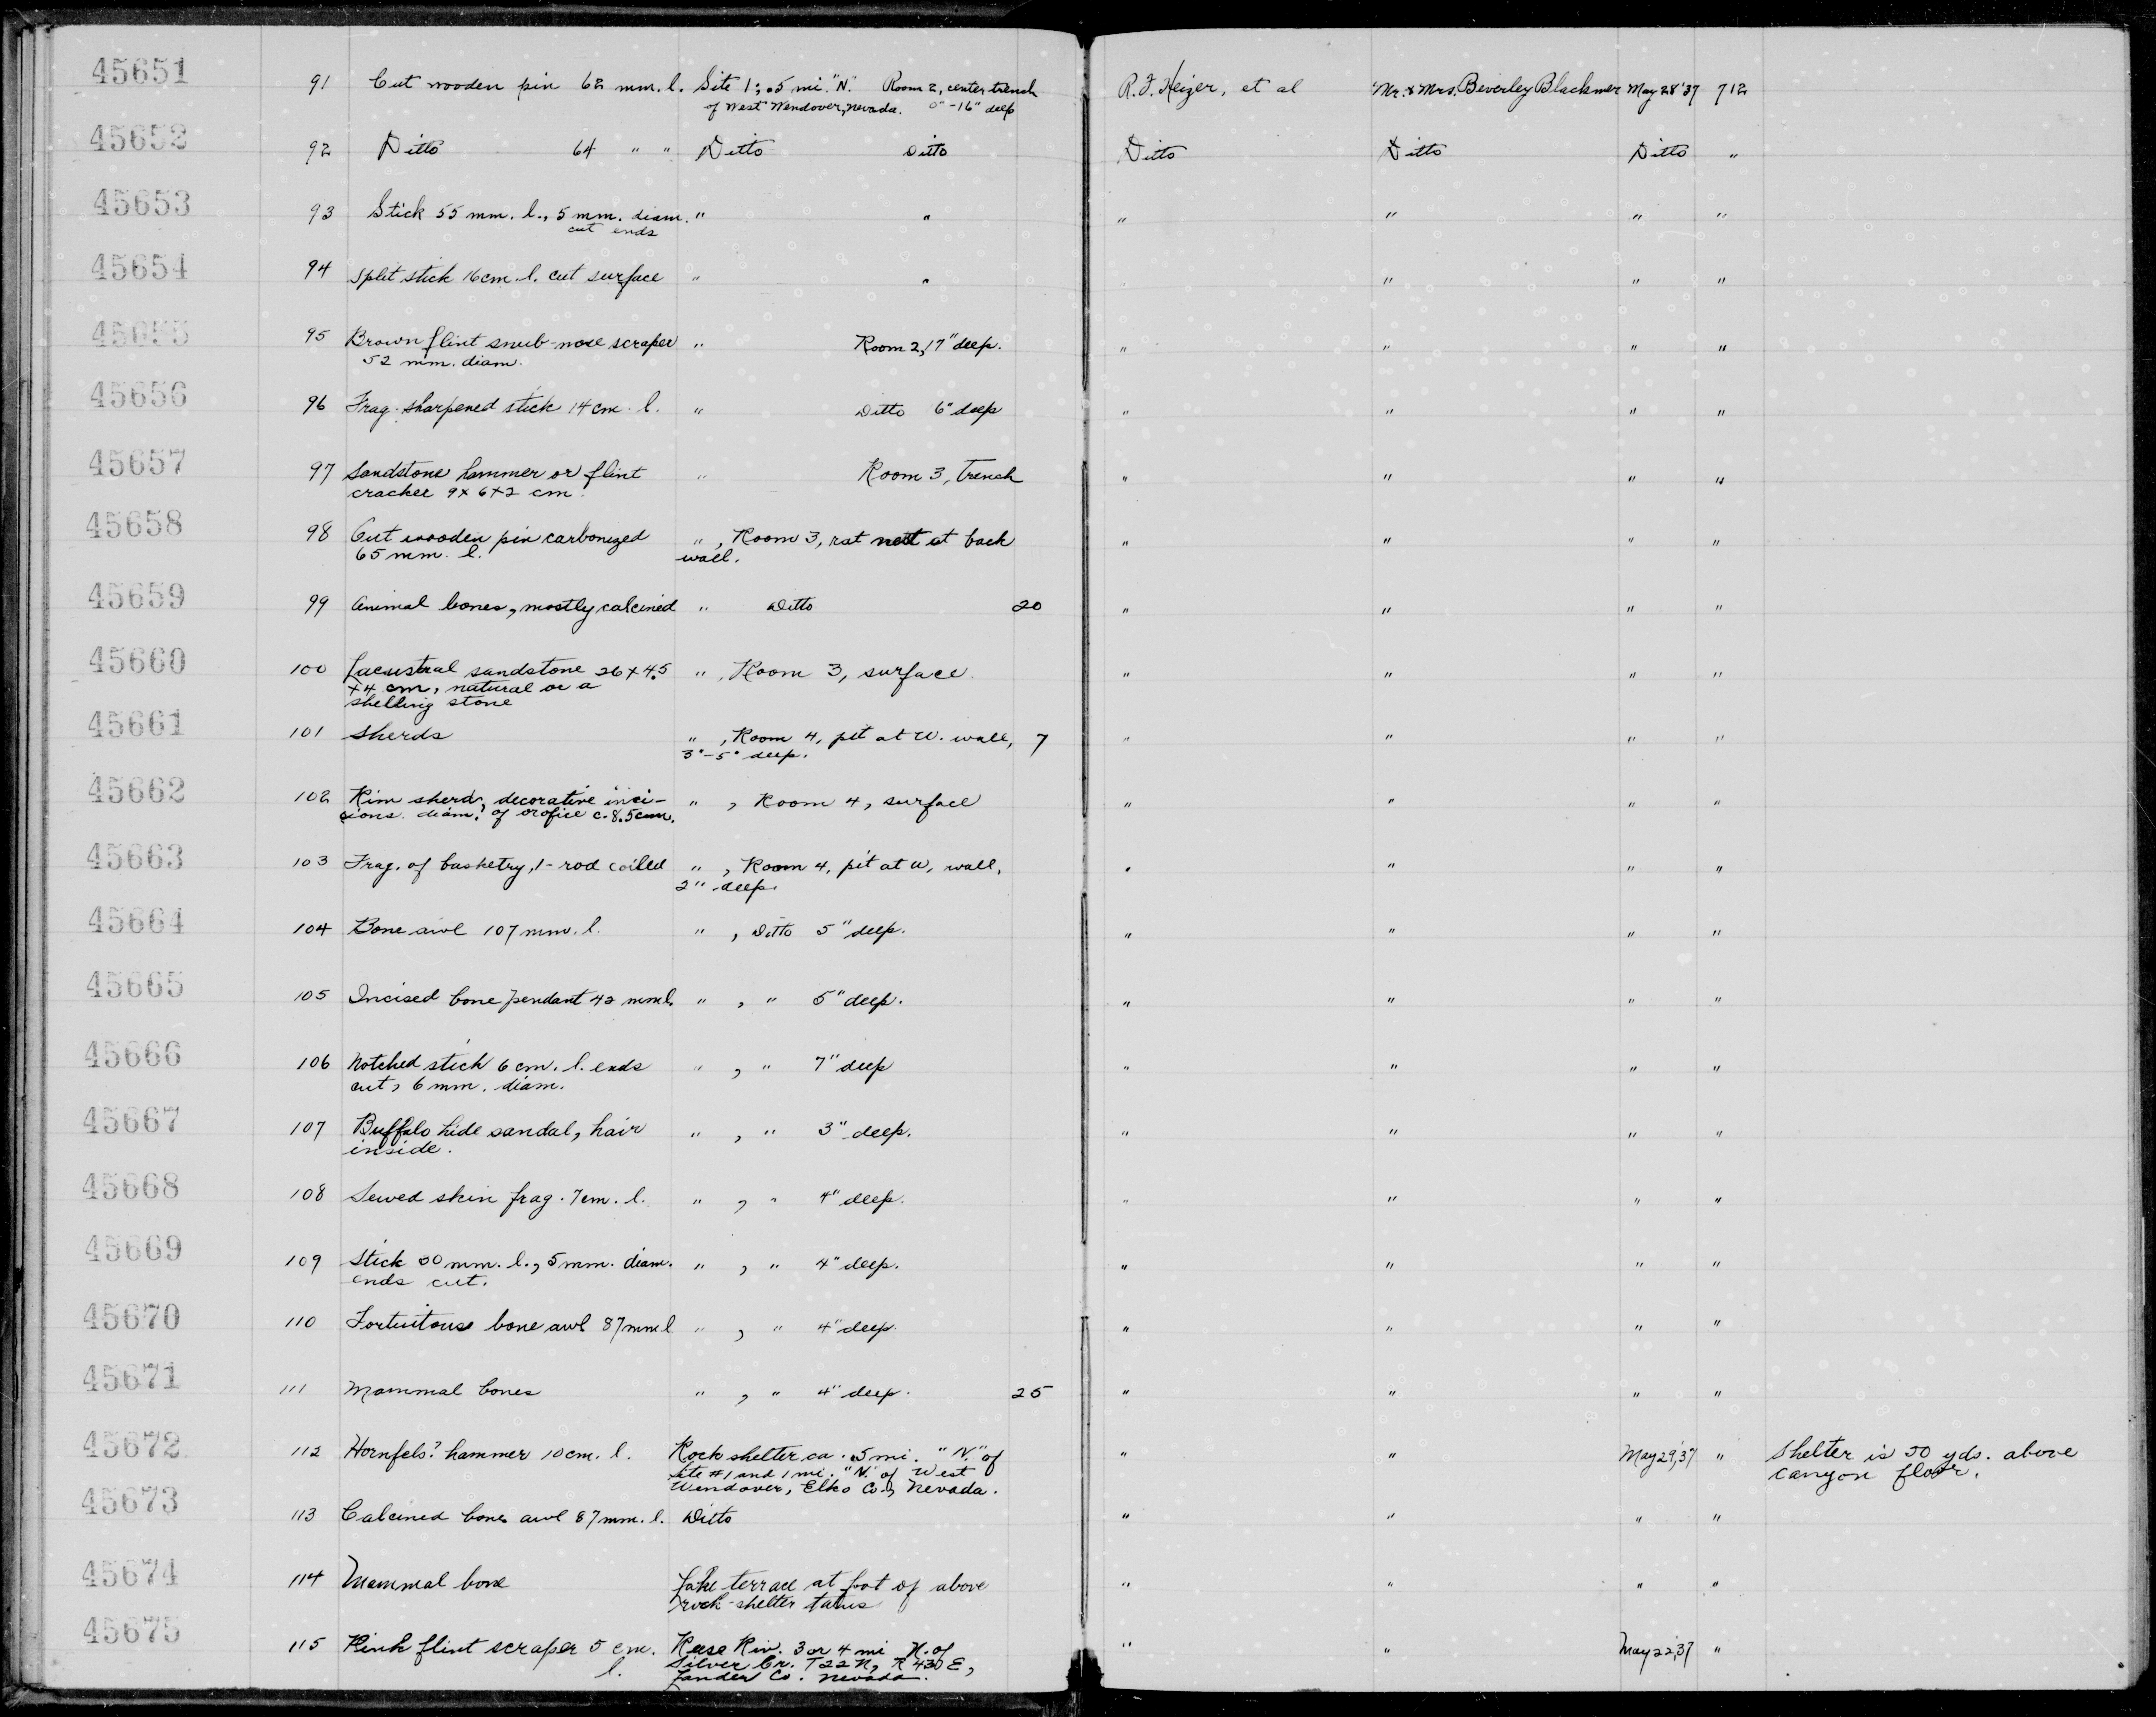 45651 91 Cut wooden pin 62 mm. l. Site 1; .5 mi. "N." Room 2, center trench R. F. Heizer, et al Mr. & Mrs. Beverley Blackmer May 28 '37 712
of West Wendover, Nevada. 0"-16" deep
45652 92 Ditto 64 " " Ditto Ditto Ditto Ditto Ditto "
45653 93 Stick 55 mm. l., 5 mm. diam. " " " " " "
cut ends
45654 94 Split stick 16 cm. l. cut surface " " " " "
45655 95 Brown flint snub-nose scraper " Room 2, 17" deep. " " " "
52 mm. diam.
45656 96 Frag. sharpened stick 14 cm. l. " Ditto 6" deep " " " "
45657 97 Sandstone hammer or flint " Room 3, trench " " " "
cracker 9 x 6 x 2 cm.
45658 98 Cut wooden pin carbonized " , Room 3, rat nest at back " " " "
65 mm. l. wall.
45659 99 Animal bones, mostly calcined " Ditto 20 " " " "
45660 100 Lacustral sandstone 26 x 4.5 " , Room 3, surface. " " " "
x 4 cm, natural or a
shelling stone
45661 101 Sherds " , Room 4, pit at W. wall, 7 " " " "
3"-5" deep.
45662 102 Rim sherd, decorative inci- " , Room 4, surface " " " "
sions. diam. of orofice c. 8.5 cm.
45663 103 Frag. of basketry, 1-rod coiled " , Room 4, pit at W. wall, " " " "
2" deep.
45664 104 Bone awl 107 mm. l. " , Ditto 5" deep. " " " "
45665 105 Incised bone pendant 42 mm l. " , " 5" deep. " " " "
45666 106 Notched stick 6 cm. l. ends " , " 7" deep " " " "
cut, 6 mm. diam.
45667 107 Buffalo hide sandal, hair " , " 3" deep. " " " "
inside.
45668 108 Sewed skin frag. 7 cm. l. " , " 4" deep. " " " "
45669 109 Stick mm. l., 5 mm. diam. " , " 4" deep. " " " "
ends cut.
45670 110 Fortuitous bone awl 87 mm l " , " 4" deep. " " " "
45671 111 Mammal bones " , " 4" deep. 25 " " " "
45672 112 Hornfels? hammer 10 cm. l. Rock shelter ca. .5 mi. "N." of " " May 29, '37 " Shelter is 50 yds. above
site #1 and 1 mi. "N." of West canyon floor.
Wendover, Elko Co., Nevada.
45673 113 Calcined bone awl 87 mm. l. Ditto " " " "
45674 114 Mammal bone Lake terrace at foot of above " " " "
rock-shelter talus
45675 115 Pink flint scraper 5 cm. Reese Riv. 3 or 4 mi N. of " " May 22, '37 "
l. Silver Cr. T22N, R43D E,
Lander Co. Nevada.